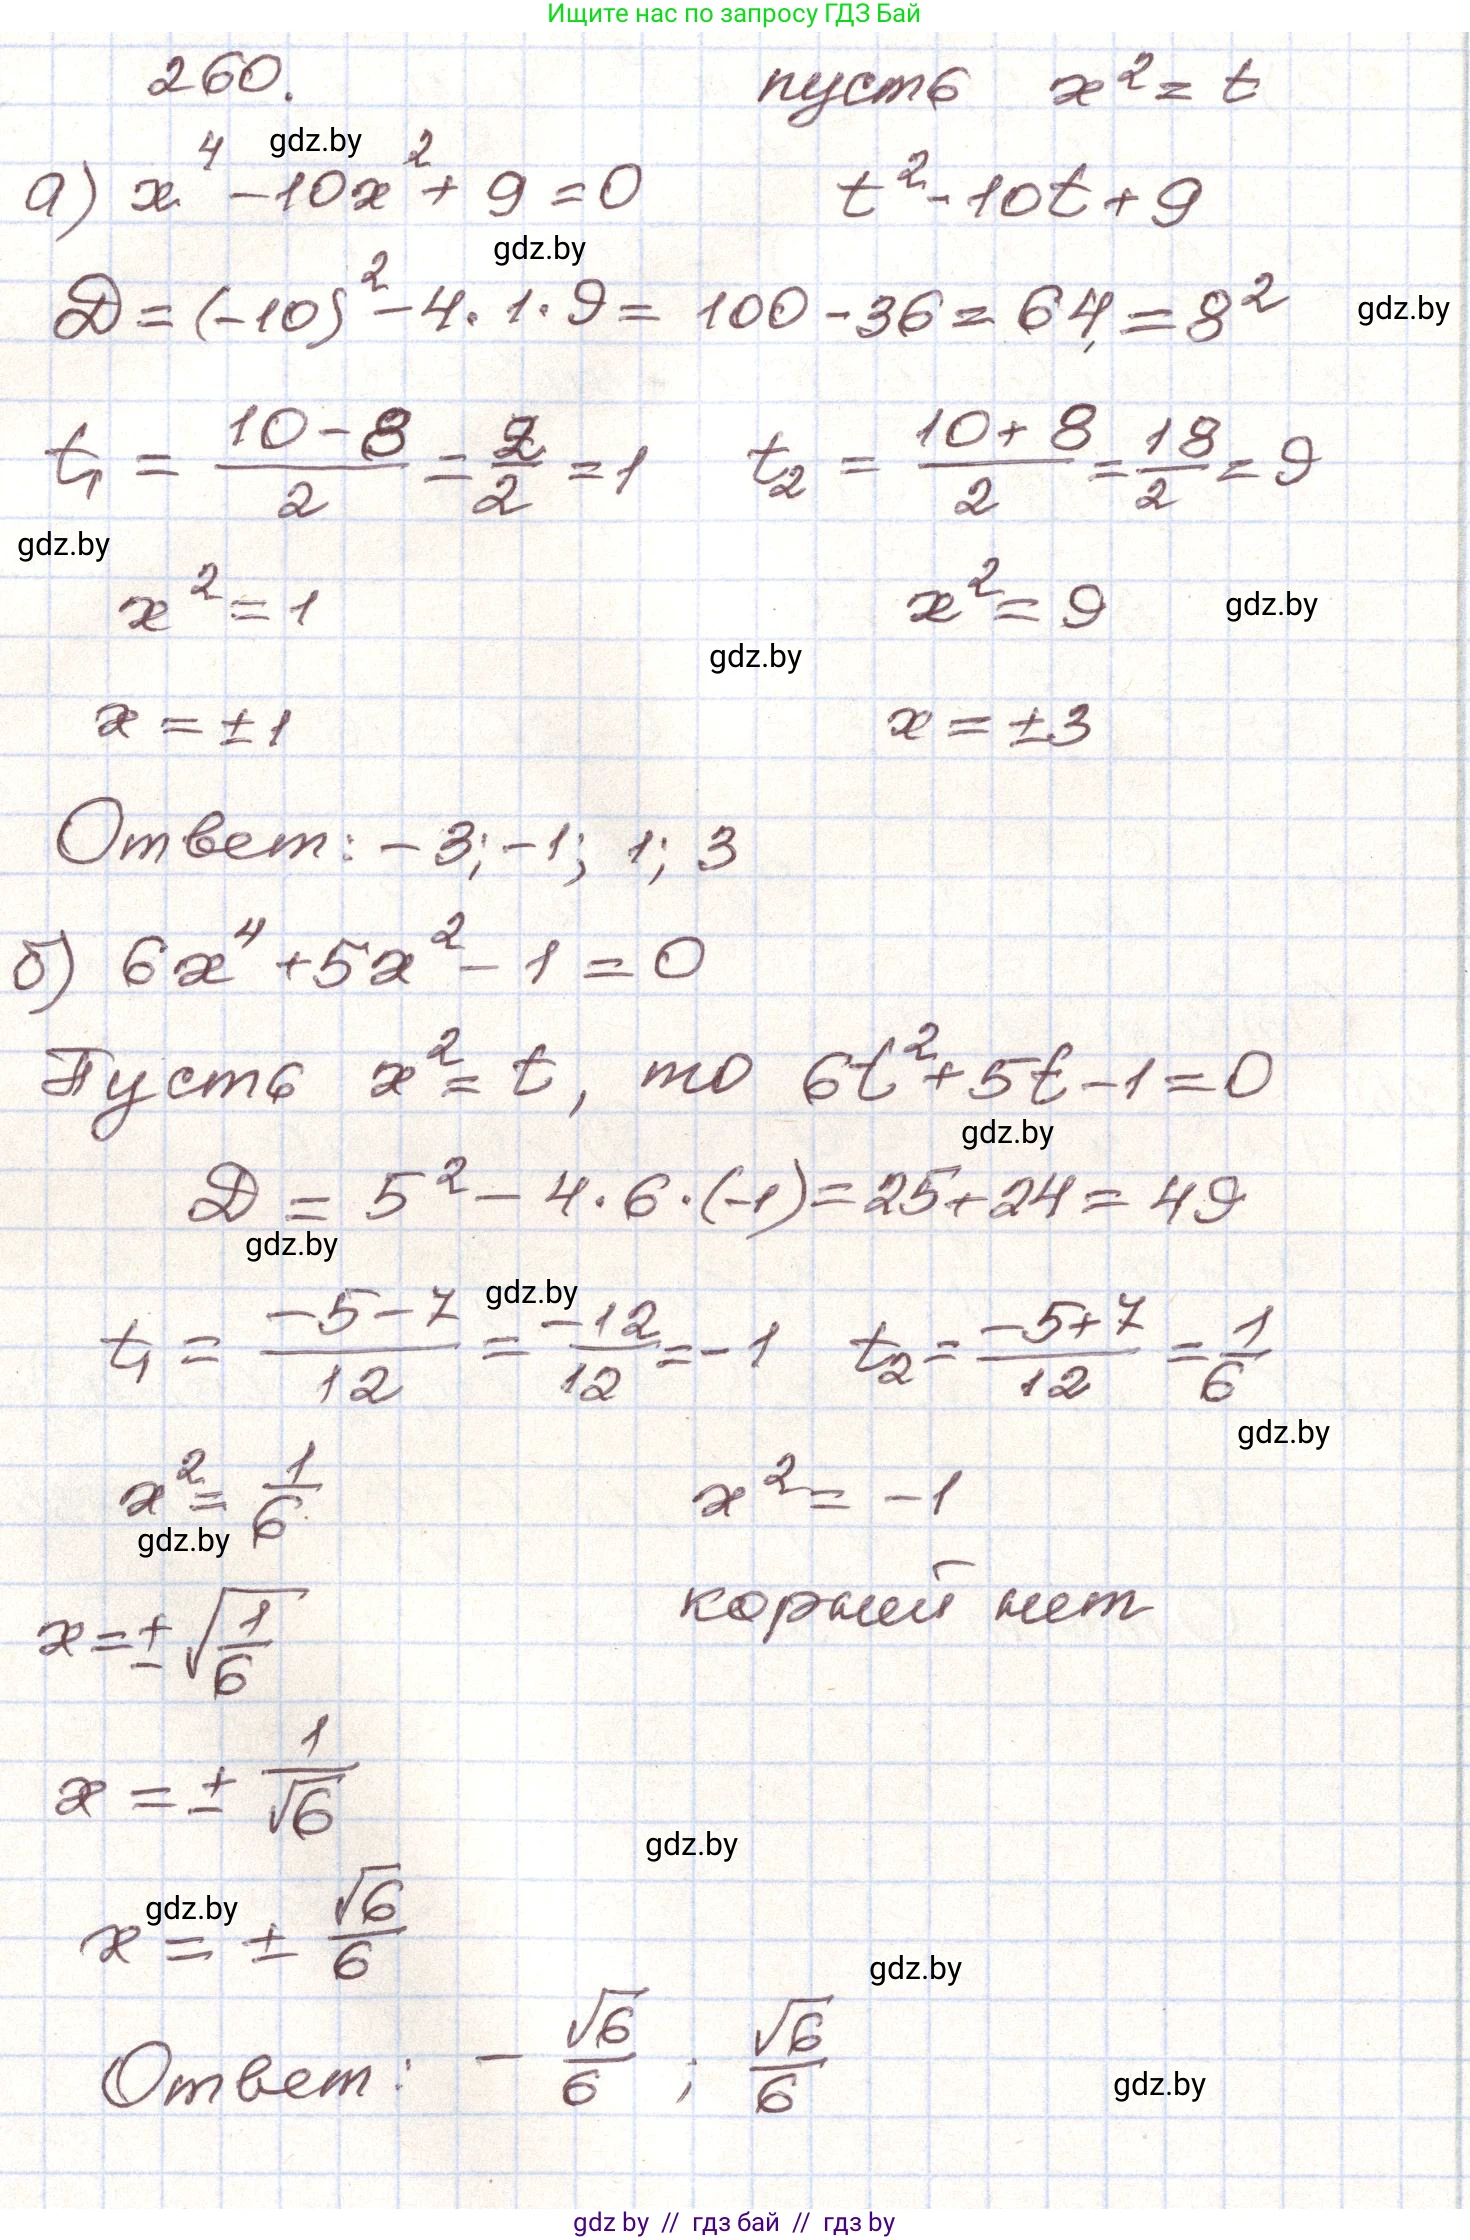 Ищите нас по запросу ГДЗ Бай
260. пусть x² = t
gdz.by
а) x⁴ - 10x² + 9 = 0 t² - 10t + 9
gdz.by
Д = (-10)² - 4 · 1 · 9 = 100 - 36 = 64 = 8² gdz.by
t₁ = (10 - 8)/2 = 2/2 = 1 t₂ = (10 + 8)/2 = 18/2 = 9
gdz.by
x² = 1 x² = 9 gdz.by
gdz.by
x = ±1 x = ±3
Ответ: -3; -1; 1; 3
б) 6x⁴ + 5x² - 1 = 0
Пусть x² = t, то 6t² + 5t - 1 = 0
gdz.by
Д = 5² - 4 · 6 · (-1) = 25 + 24 = 49
gdz.by
gdz.by
t₁ = (-5 - 7)/12 = -12/12 = -1 t₂ = (-5 + 7)/12 = 1/6
gdz.by
x² = 1/6 x² = -1
gdz.by
x = ±√(1/6) корней нет
x = ± 1/√6
gdz.by
gdz.by
x = ± √6/6
gdz.by
Ответ: - √6/6 ; √6/6
gdz.by
gdz by // гдз бай // гдз by